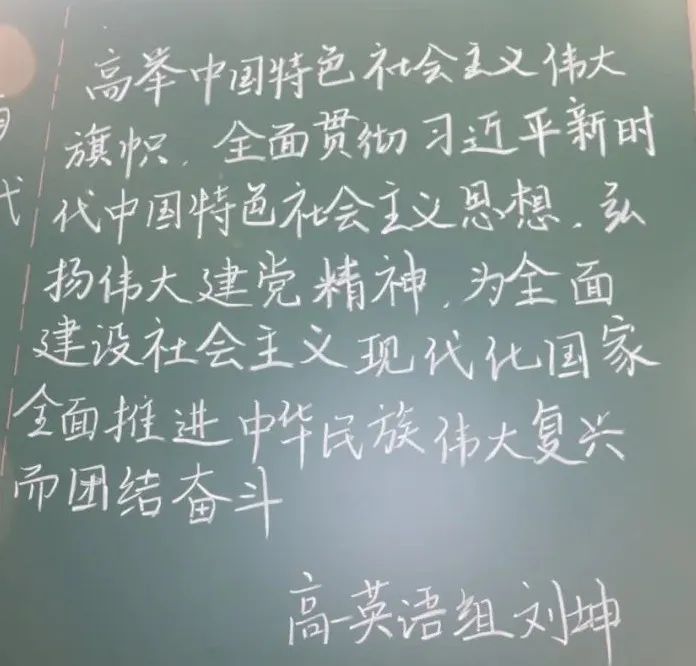 高举中国特色社会主义伟大
旗帜，全面贯彻习近平新时
代中国特色社会主义思想，弘
扬伟大建党精神，为全面
建设社会主义现代化国家
全面推进中华民族伟大复兴
而团结奋斗
高一英语组刘坤
代